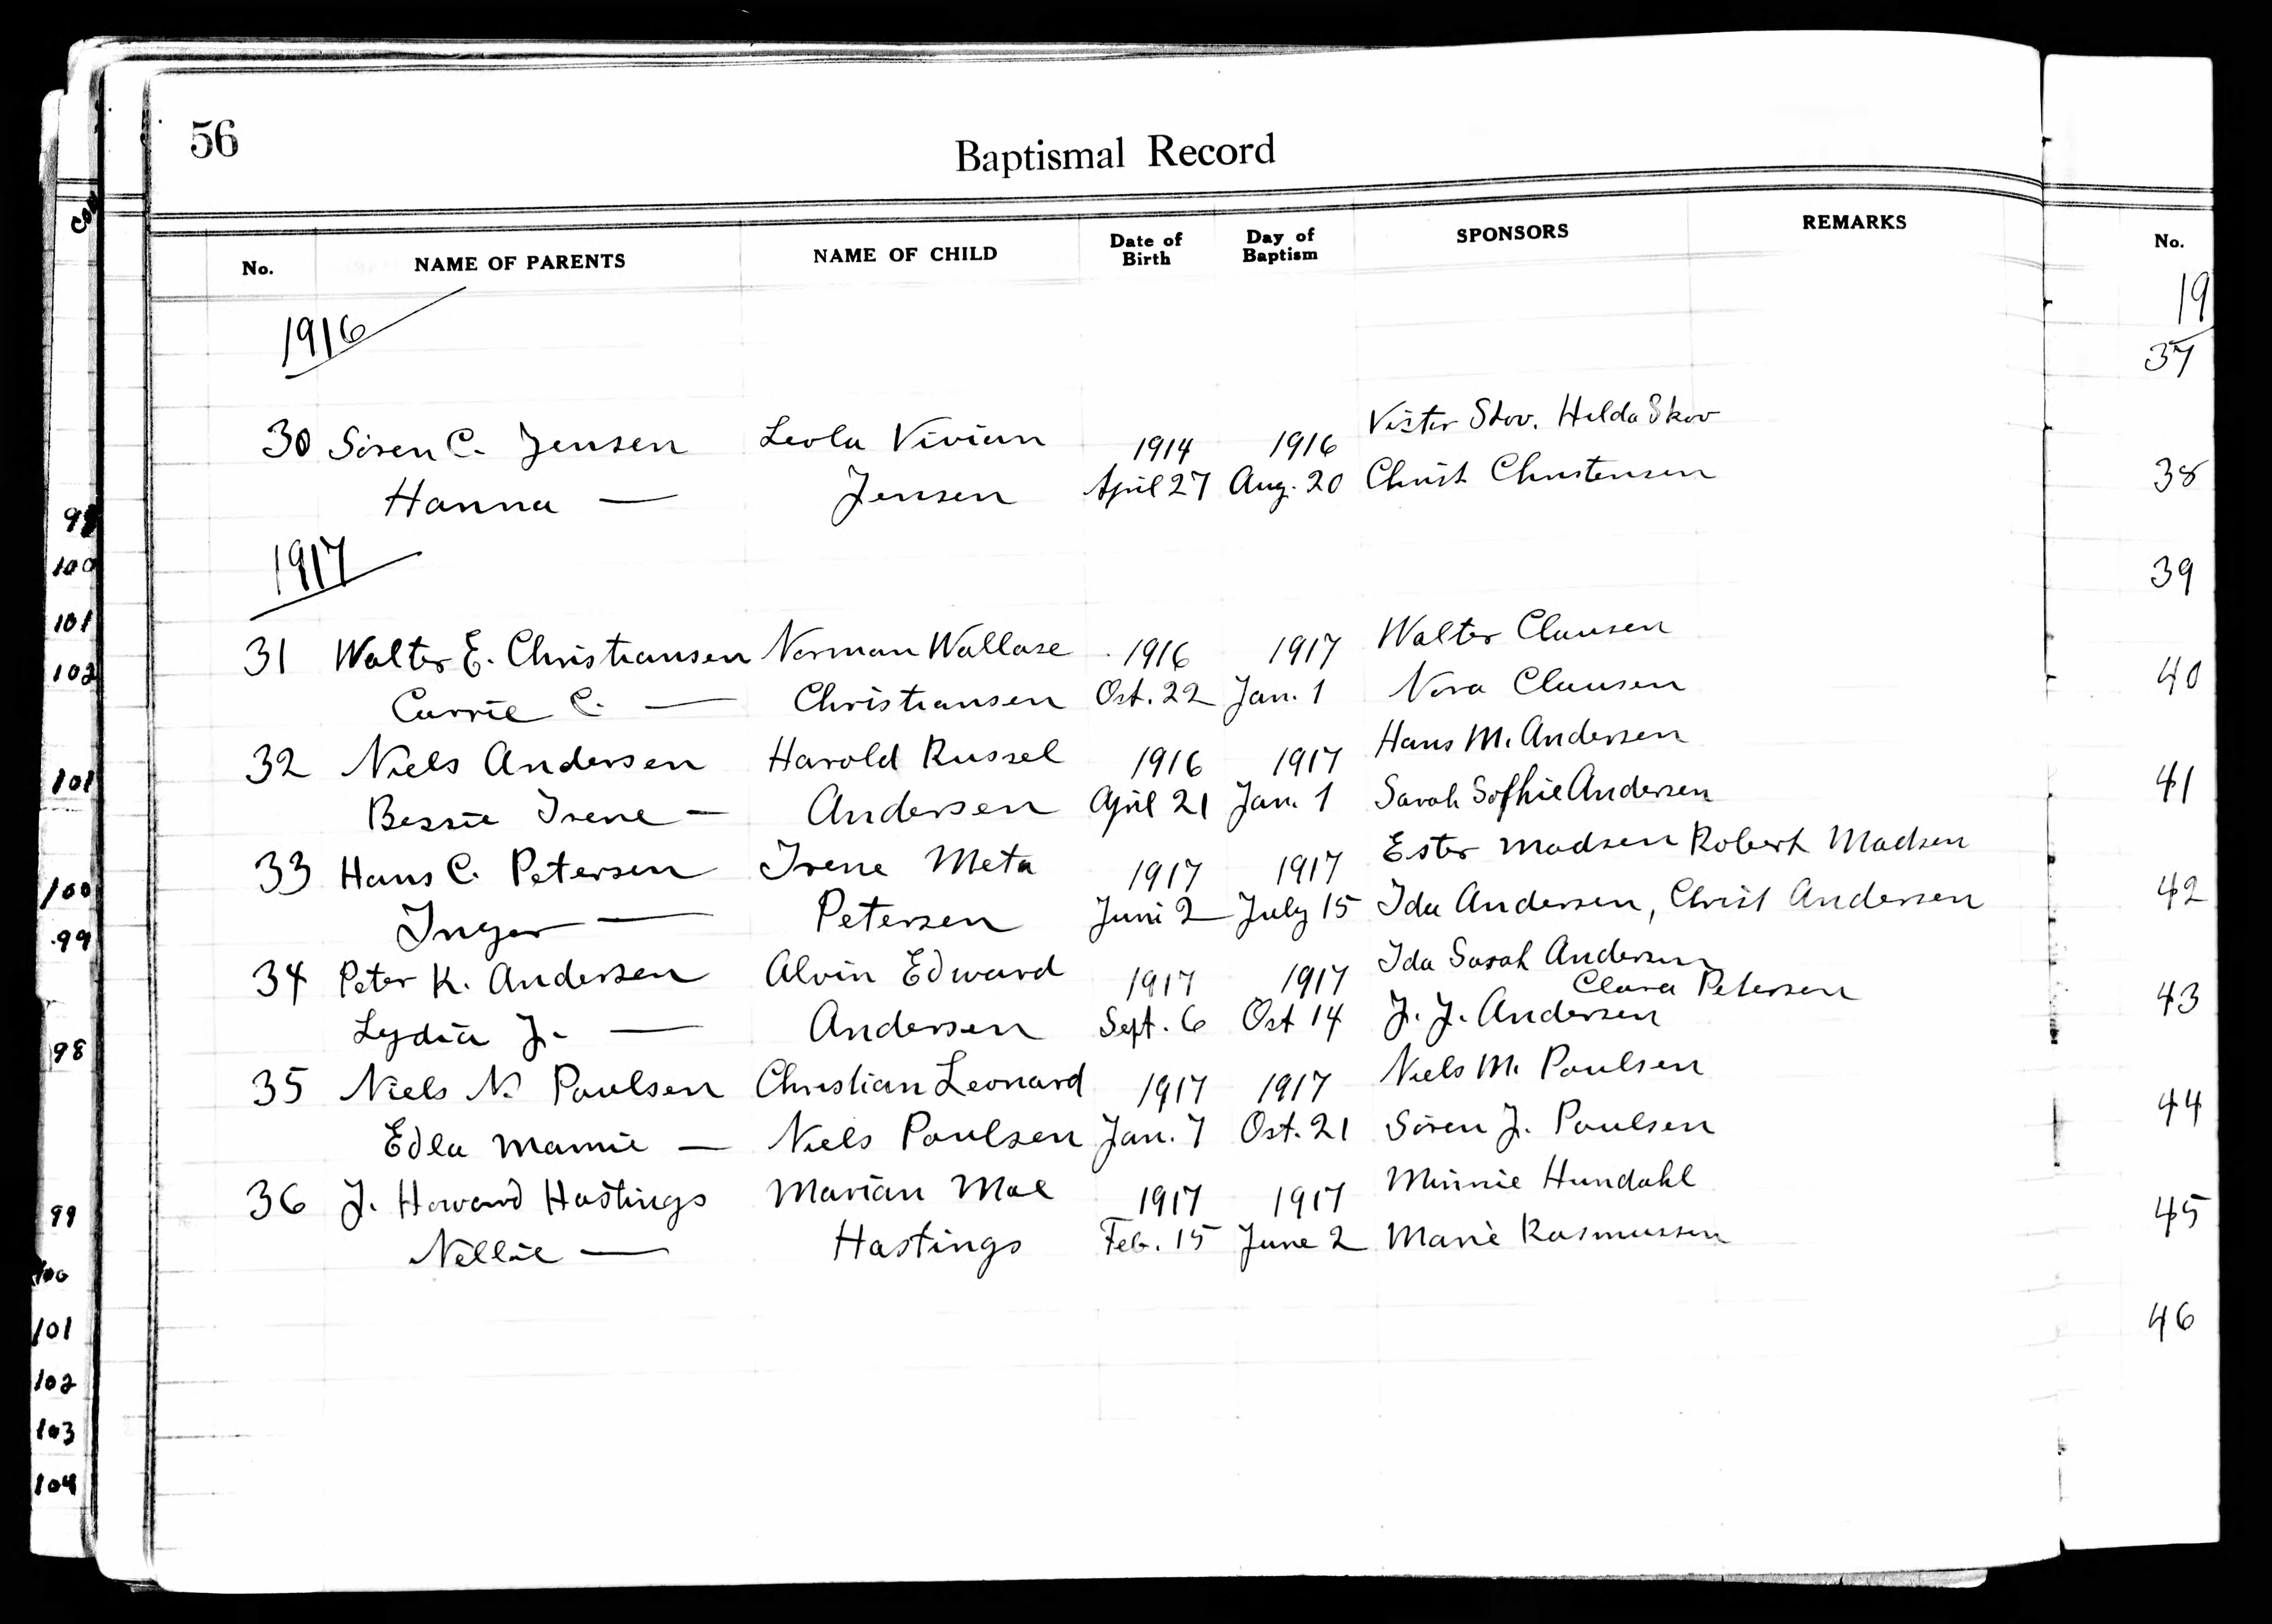 56
Baptismal Record
No. NAME OF PARENTS NAME OF CHILD Date of Birth Day of Baptism SPONSORS REMARKS No.
1916
30 Sören C. Jensen Leola Vivian 1914 1916 Victor Skov. Hilda Skov
Hanna — Jensen April 27 Aug. 20 Christ Christensen
1917
31 Walter E. Christiansen Norman Wallase 1916 1917 Walter Clausen
Carrie C. — Christiansen Oct. 22 Jan. 1 Nora Clausen
32 Niels Andersen Harold Russel 1916 1917 Hans M. Andersen
Bessie Irene — Andersen April 21 Jan. 1 Sarah Sofhie Andersen
33 Hans C. Petersen Irene Meta 1917 1917 Ester Madsen Robert Madsen
Inger — Petersen Juni 2 July 15 Ida Andersen, Christ Andersen
34 Peter K. Andersen Alvin Edward 1917 1917 Ida Sarah Andersen
Clara Petersen
Lydia J. — Andersen Sept. 6 Oct 14 J. J. Andersen
35 Niels N. Poulsen Christian Leonard 1917 1917 Niels M. Poulsen
Edla Mamie — Niels Poulsen Jan. 7 Oct. 21 Sören J. Poulsen
36 J. Howard Hastings Marian Mae 1917 1917 Minnie Hundahl
Nellie — Hastings Feb. 15 June 2 Marie Rasmussen
19
37
38
39
40
41
42
43
44
45
46
100
101
102
101
100
99
98
99
100
101
102
103
104